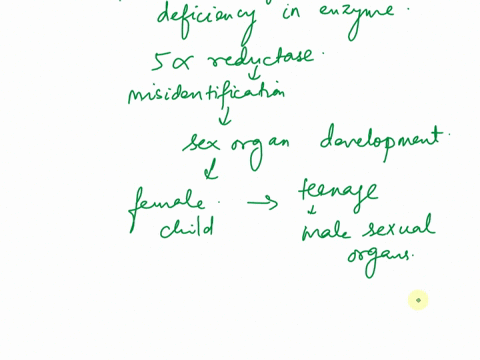 deficiency in enzyme.
5α reductase.
↓
misidentification
↓
sex organ development.
↓
female. → teenage
child ↓
male sexual
organs.